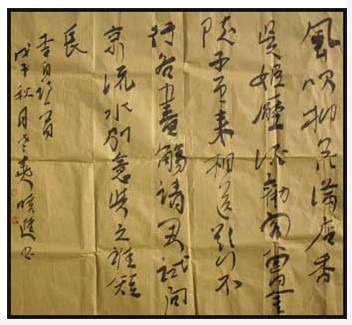 風吹柳花滿店香
吳姬壓酒勸客嘗金
陵子弟來相送欲行不
行各盡觴請君試問
東流水別意與之誰短
長
李白詩一首
戊午秋月